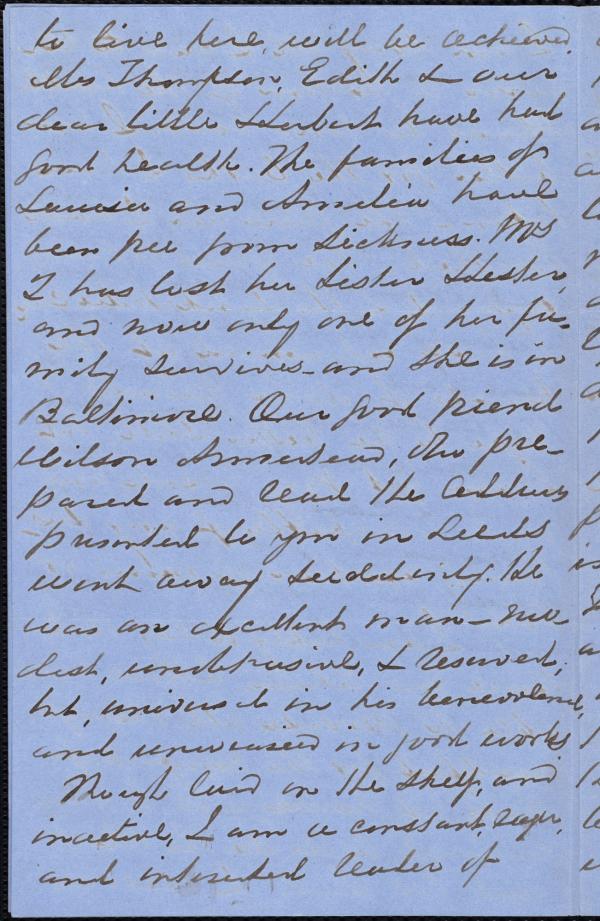 to live here, will be achieved.
Mrs Thompson, Edith & our
dear little Herbert have had
good health. The families of
Louisa and Amelia have
been free from sickness. Mrs
T has lost her sister Hester,
and now only one of her fa-
mily survives - and she is in
Baltimore. Our good friend
Wilson Armistead, who pre-
pared and read the Address
presented to you in Leeds
went away suddenly. He
was an excellent man - mo-
dest, unobtrusive, & reserved,
but, universal in his benevolence,
and unwearied in good works
Though laid on the shelf, and
inactive, I am a constant, eager,
and interested reader of